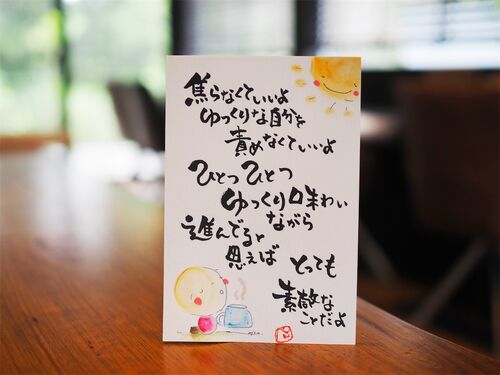 焦らなくていいよ
ゆっくりな自分を
責めなくていいよ
ひとつひとつ
ゆっくり味わい
ながら
進んでると
思えば
とっても
素敵な
ことだよ